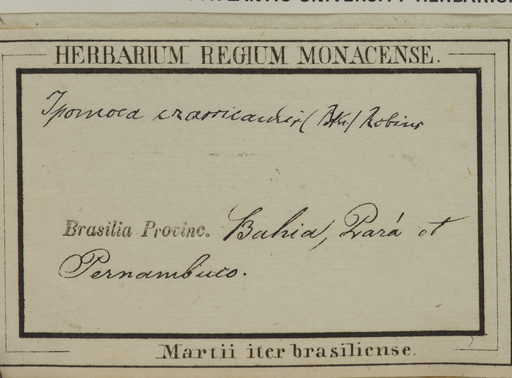 HERBARIUM REGIUM MONACENSE.
Ipomoea crassicaulis (Bth.) Robins
Brasilia Provinc. Bahia, Pará et
Pernambuco.
Martii iter brasiliense.